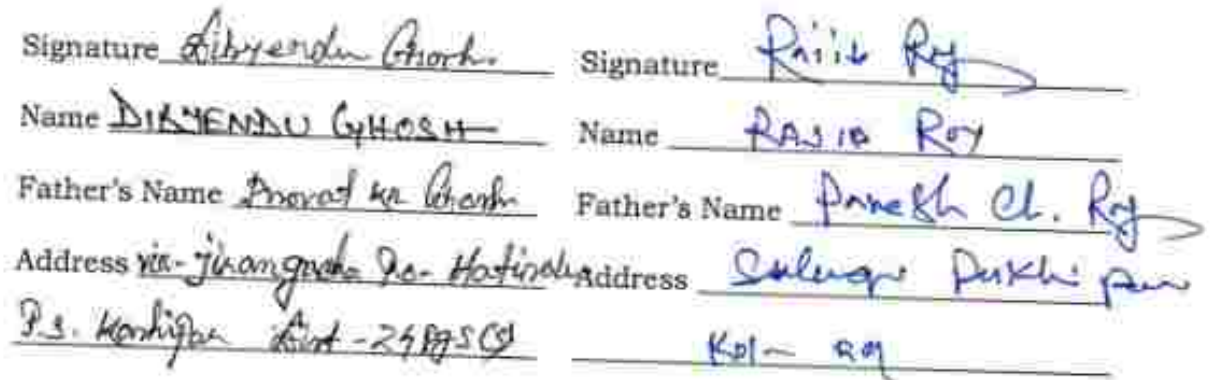 Signature Dibyendu Ghosh.
Name DIBYENDU GHOSH
Father's Name Provat kr Ghosh
Address vill- Jirangacha Po- Hatisala
P.S. Kashipur Dist - 24 Pgs (S)
Signature Rajib Roy
Name RAJIB ROY
Father's Name Paresh Ch. Roy
Address
Kol-